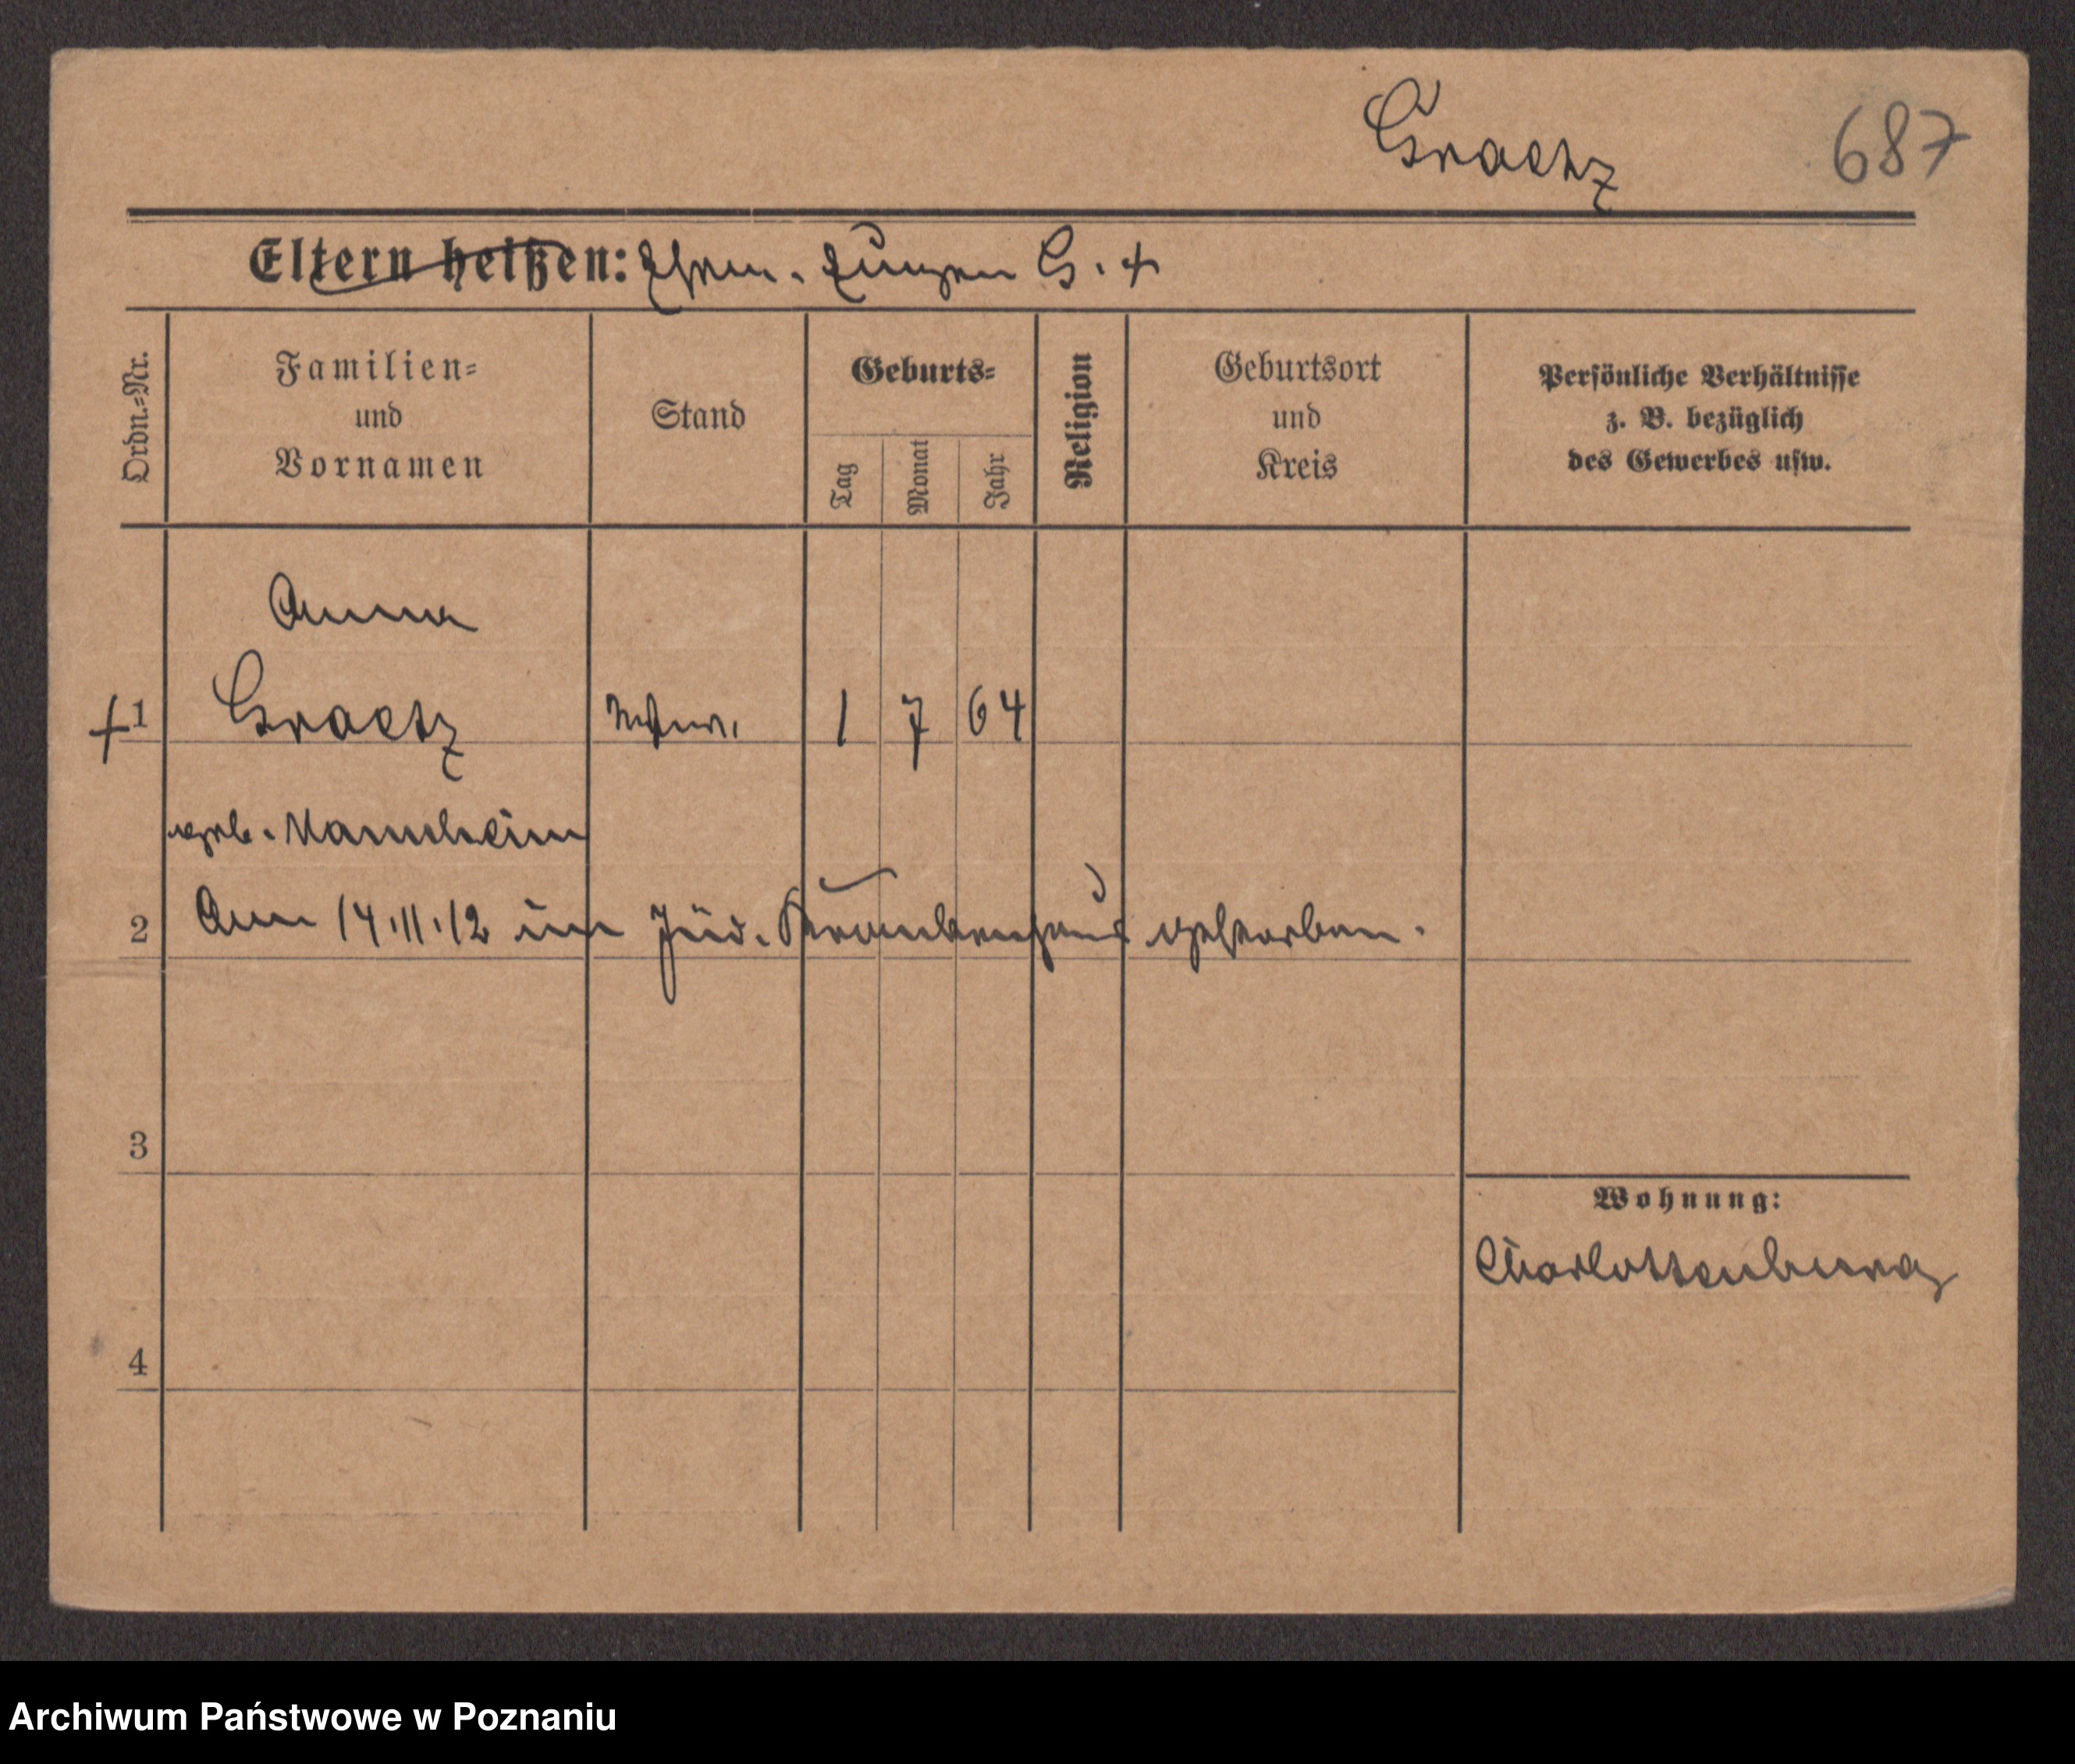 Graetz 687
Eltern heißen: Ehem. Eugen G. +
Ordn.=Nr.
Familien=
und
Vornamen
Stand
Geburts=
Tag
Monat
Jahr
Religion
Geburtsort
und
Kreis
Persönliche Verhältnisse
z. B. bezüglich
des Gewerbes usw.
Anna
+ 1 Graetz Wwe. 1 7 64
geb. Mannheim
2 Am 14.11.12 im Jüd. Krankenhaus gestorben.
3
Wohnung:
Charlottenburg
4
Archiwum Państwowe w Poznaniu